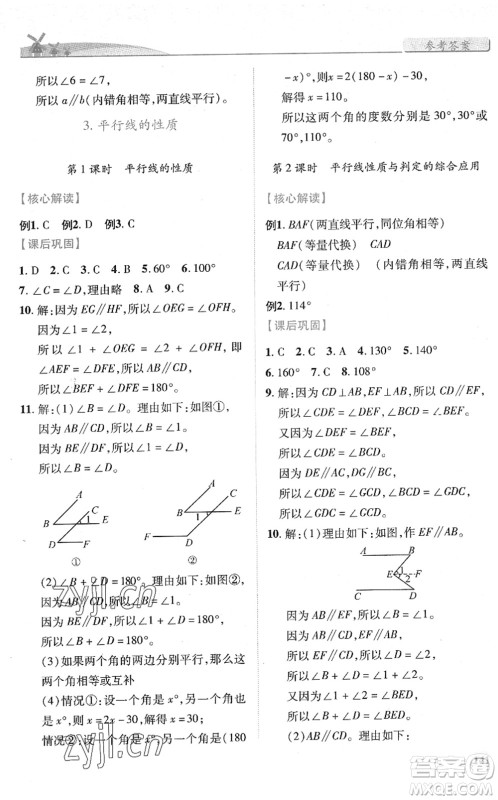 参考答案
所以∠6＝∠7，
所以 a∥b（内错角相等，两直线平行）。
3. 平行线的性质
第 1 课时　平行线的性质
【核心解读】
例1. C　例2. D　例3. C
【课后巩固】
1. D　2. C　3. C　4. B　5. 60°　6. 100°
7. ∠C＝∠D，理由略　8. A　9. C
10. 解：因为 EG∥HF，所以∠OEG＝∠OFH。
因为∠1＝∠2，
所以∠1＋∠OEG＝∠2＋∠OFH，即
∠AEF＝∠DFE，所以 AB∥CD，
所以∠BEF＋∠DFE＝180°。
11. 解：(1)∠B＝∠D。理由如下：如图①，
因为 AB∥CD，所以∠B＝∠1。
因为 BE∥DF，所以∠1＝∠D，
所以∠B＝∠D。
A C B 1 E D F
①
A C B 1 E F D
②
(2)∠B＋∠D＝180°。理由如下：如图②，
因为 AB∥CD，所以∠B＝∠1。
因为 BE∥DF，所以∠1＋∠D＝180°，
所以∠B＋∠D＝180°。
(3)如果两个角的两边分别平行，那么这
两个角相等或互补
(4)情况①：设一个角是 x°，则另一个角
也是 x°，则 x＝2x－30，解得 x＝30。
情况②：设一个角是 x°，则另一个角是(180
－x)°，则 x＝2(180－x)－30，
解得 x＝110。
所以这两个角的度数分别是 30°，30°或
70°，110°。
第 2 课时　平行线性质与判定的综合应用
【核心解读】
例1. BAF（两直线平行，同位角相等）
BAF（等量代换）　CAD
CAD（等量代换）（内错角相等，两直线
平行）
例2. 114°
【课后巩固】
1. C　2. C　3. A　4. 130°　5. 140°
6. 160°　7. C　8. 108°
9. 解：因为 CD⊥AB，EF⊥AB，所以 CD∥EF，
所以∠GCD＝∠FEB。
又因为∠AGD＝∠ACB，
所以 DG∥BC，
因为 DG∥BC，所以∠CDG＝∠GCD，
所以∠CDG＝∠FEB。
10. 解：(1)理由如下：如图，作 EF∥AB。
A B E 1 2 F C D
因为 AB∥EF，所以∠B＝∠1。
又因为 AB∥CD，所以 EF∥CD，
所以∠2＝∠D，
所以∠B＋∠D＝∠1＋∠2，
又因为∠1＋∠2＝∠BED，
所以∠B＋∠D＝∠BED。
zyjl.cn
zyjl.cn